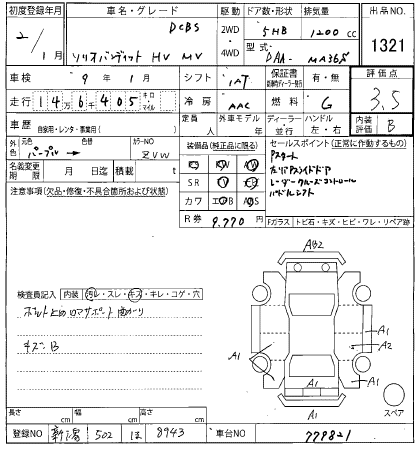 初度登録年月 車名・グレード 駆動 ドア数・形状 排気量 出品NO
DCBS 2WD 5HB 1200 cc
2/1月 ソリオバンディット HV MV 4WD 型式 DAA- MA36S 1321
車検 9年 1月 シフト IAT 保証書 有・無 評価点
走行 14万6千405 キロ マイル 冷房 AAC 燃料 G 3.5
車歴 自家用・レンタ・事業用( ) 定員 人 外車モデル 年 ディーラー 並行 ハンドル 左・右 内装評価 B
外色 元色 パープル → 色替 カラーNO ZVW
装備品(純正品に限る) セールスポイント(正常に作動するもの)
Pスタート
名義変更期限 月 日迄 積載 t
左右Pスライドドア
SR
レーダークルーズコントロール
注意事項(欠品・修復・不具合箇所および状態)
カワ AB S
パドルシフト
R券 9,770
Fガラス トビ石・キズ・ヒビ・ワレ・リペア跡
AB2
検査員記入 内装 汚レ・スレ・キズ・キレ・コゲ・穴
ボルト止めロアサポート曲がり
A1
A2
キズ B
A1
A1
A1
A1
スペア
長さ cm 幅 cm 高さ cm
登録NO 新潟 502 ほ 8943 車台NO 779821